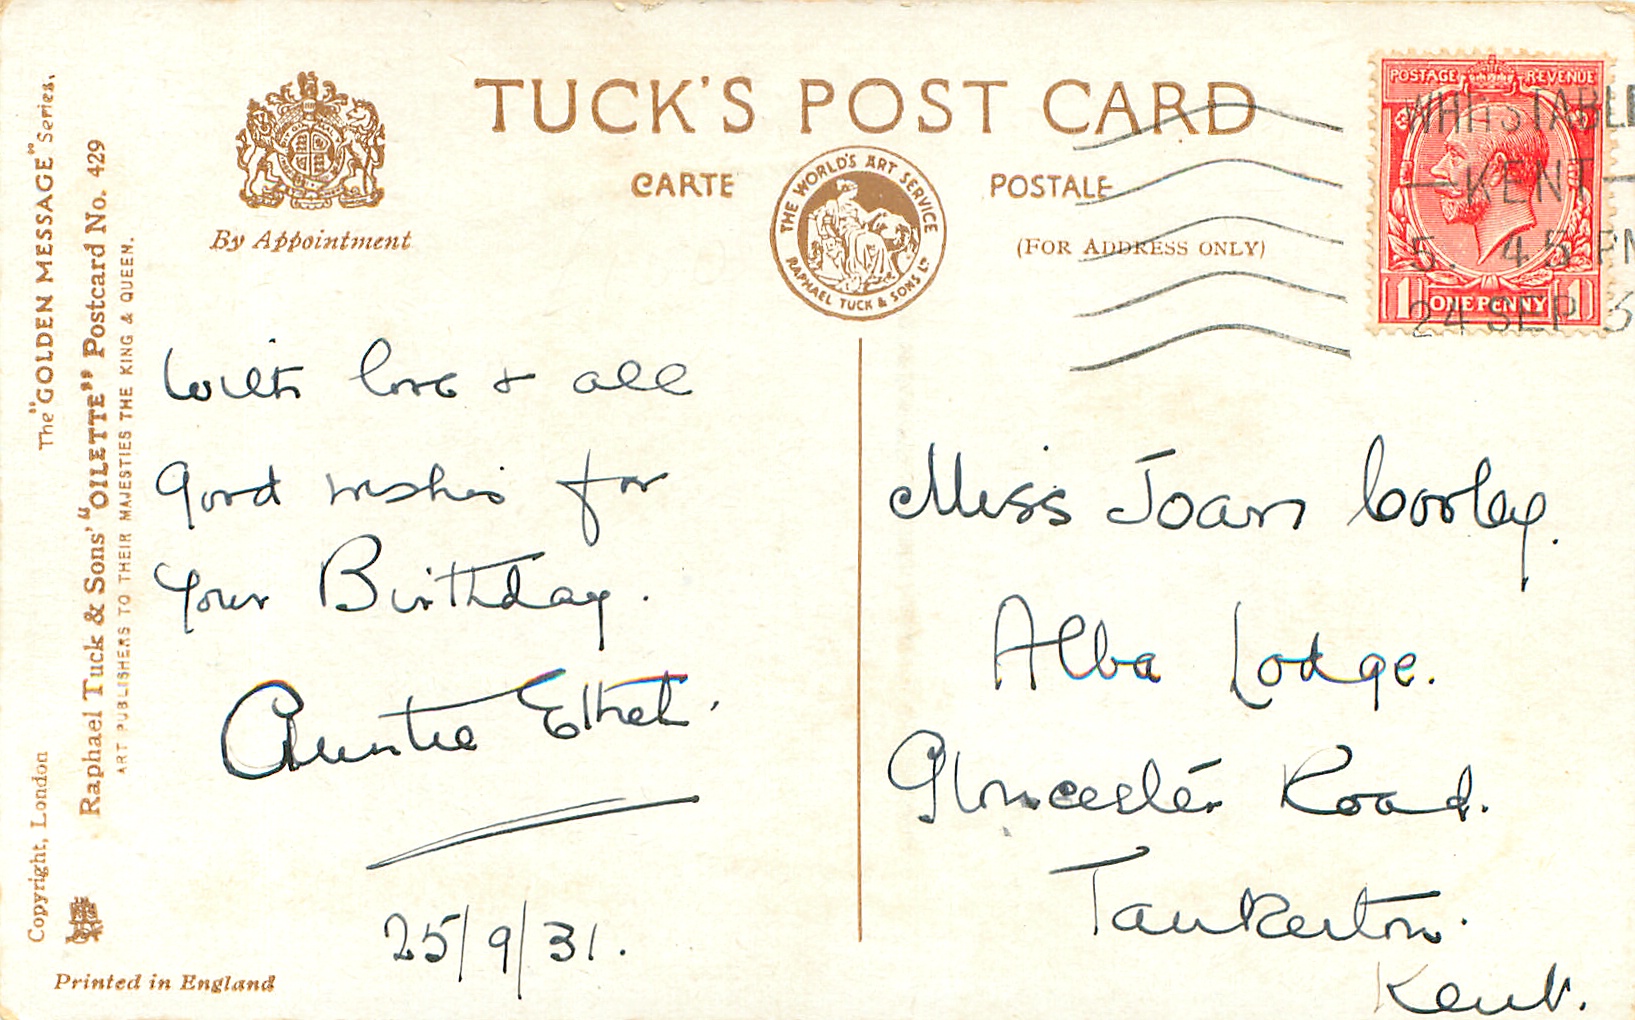 TUCK'S POST CARD
CARTE POSTALE
(FOR ADDRESS ONLY)
By Appointment
THE WORLD'S ART SERVICE
RAPHAEL TUCK & SONS LTD
POSTAGE REVENUE
ONE PENNY
1 1
WHITSTABLE
KENT
5. 45 PM
24 SEP 3
The "GOLDEN MESSAGE" Series.
Raphael Tuck & Sons' "OILETTE" Postcard No. 429
ART PUBLISHERS TO THEIR MAJESTIES THE KING & QUEEN.
Copyright, London
Printed in England
With love & all
good wishes for
your Birthday.
Auntie Ethel.
25/9/31.
Miss Joan Cooley.
Alba Lodge.
Gloucester Road.
Tankerton.
Kent.